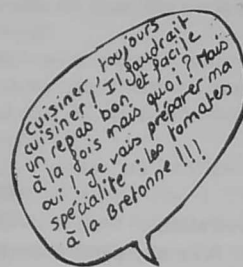 Cuisiner, toujours
cuisiner ! Il faudrait
un repas bon et facile
à la fois mais quoi ? Mais
oui ! Je vais préparer ma
spécialité : les tomates
à la Bretonne !!!